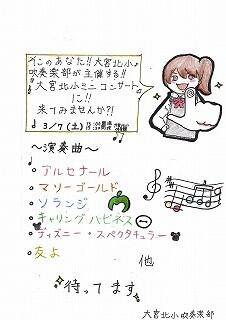 そこのあなた!!大宮北小♪
吹奏楽部が主催する!!
大宮北小ミニコンサート
に!!
来てみませんか?!
3/7(土)
～演奏曲～
アルセナール
マリーゴールド
ソランジ
キャリングハピネス
ディズニー・スペクタキュラー
友よ
他
待ってます
大宮北小吹奏楽部